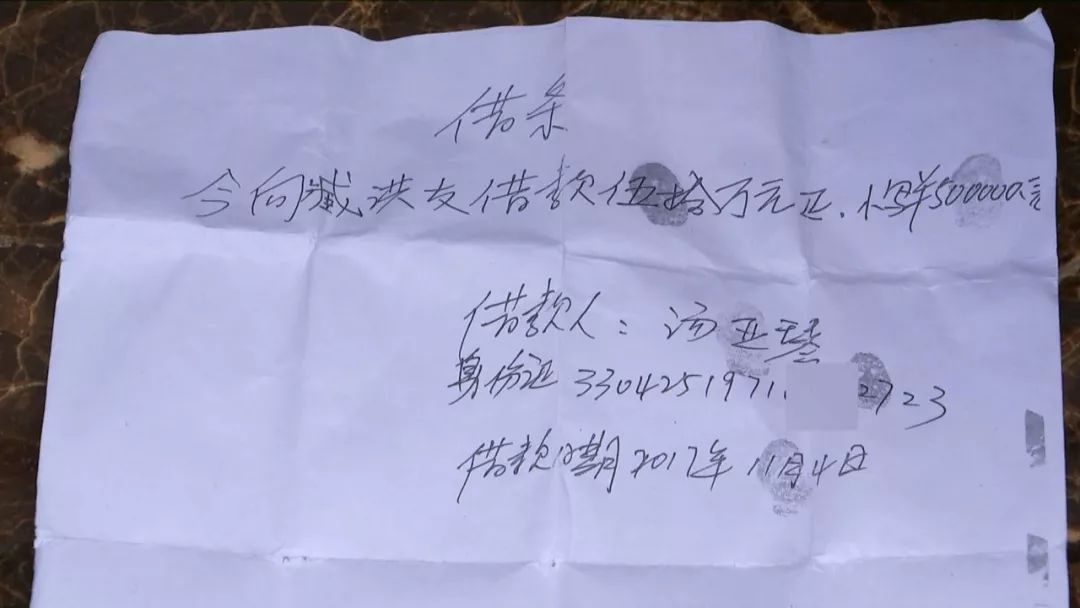 借条
今向臧洪友借款伍拾万元正.小写500000元
借款人：汤亚琴
身份证3304251971. 2723
借款日期2017年11月4日